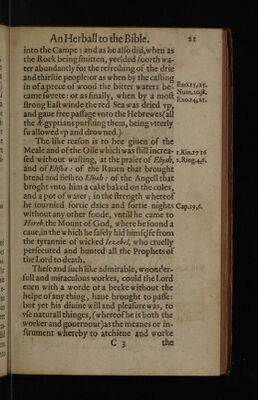 An Herball to the Bible. 21
into the Campe: and as he also did, when as
the Rock being smitten, yeelded foorth wa-
ter abundantly for the refreshing of the drie
and thirstie people: or as when by the casting
in of a peece of wood the bitter waters be-
came sweete: or as finally, when by a most
strong East winde the red Sea was dried vp,
and gaue free passage vnto the Hebrewes (all
the Ægyptians pursuing them, being vtterly
swallowed vp and drowned.)
Exo.15,25.
Num.20,8.
Exo.14,21.
The like reason is to bee giuen of the
Meale and of the Oile which was still increa-
sed without wasting, at the praier of Elijah,
and of Elisha: of the Rauen that brought
bread and flesh to Elijah: of the Angell that
broght vnto him a cake baked on the coles,
and a pot of water; in the strength whereof
he iournied fortie daies and fortie nights
without any other foode, vntill he came to
Horeb, the Mount of God, where he found a
caue, in the which he safely hid himselfe from
the tyrannie of wicked Iezebel, who cruelly
persecuted and hunted all the Prophets of
the Lord to death.
1.Kin.17 16
2.King.4,6.
Cap.19,6.
These and such like admirable, woonder-
full and miraculous workes, could the Lord
euen with a worde or a becke without the
helpe of any thing, haue brought to passe:
but yet his diuine will and pleasure was, to
vse naturall things, (whereof he is both the
worker and gouernour) as the meanes or in-
strument whereby to atchieue and worke
C 3 the